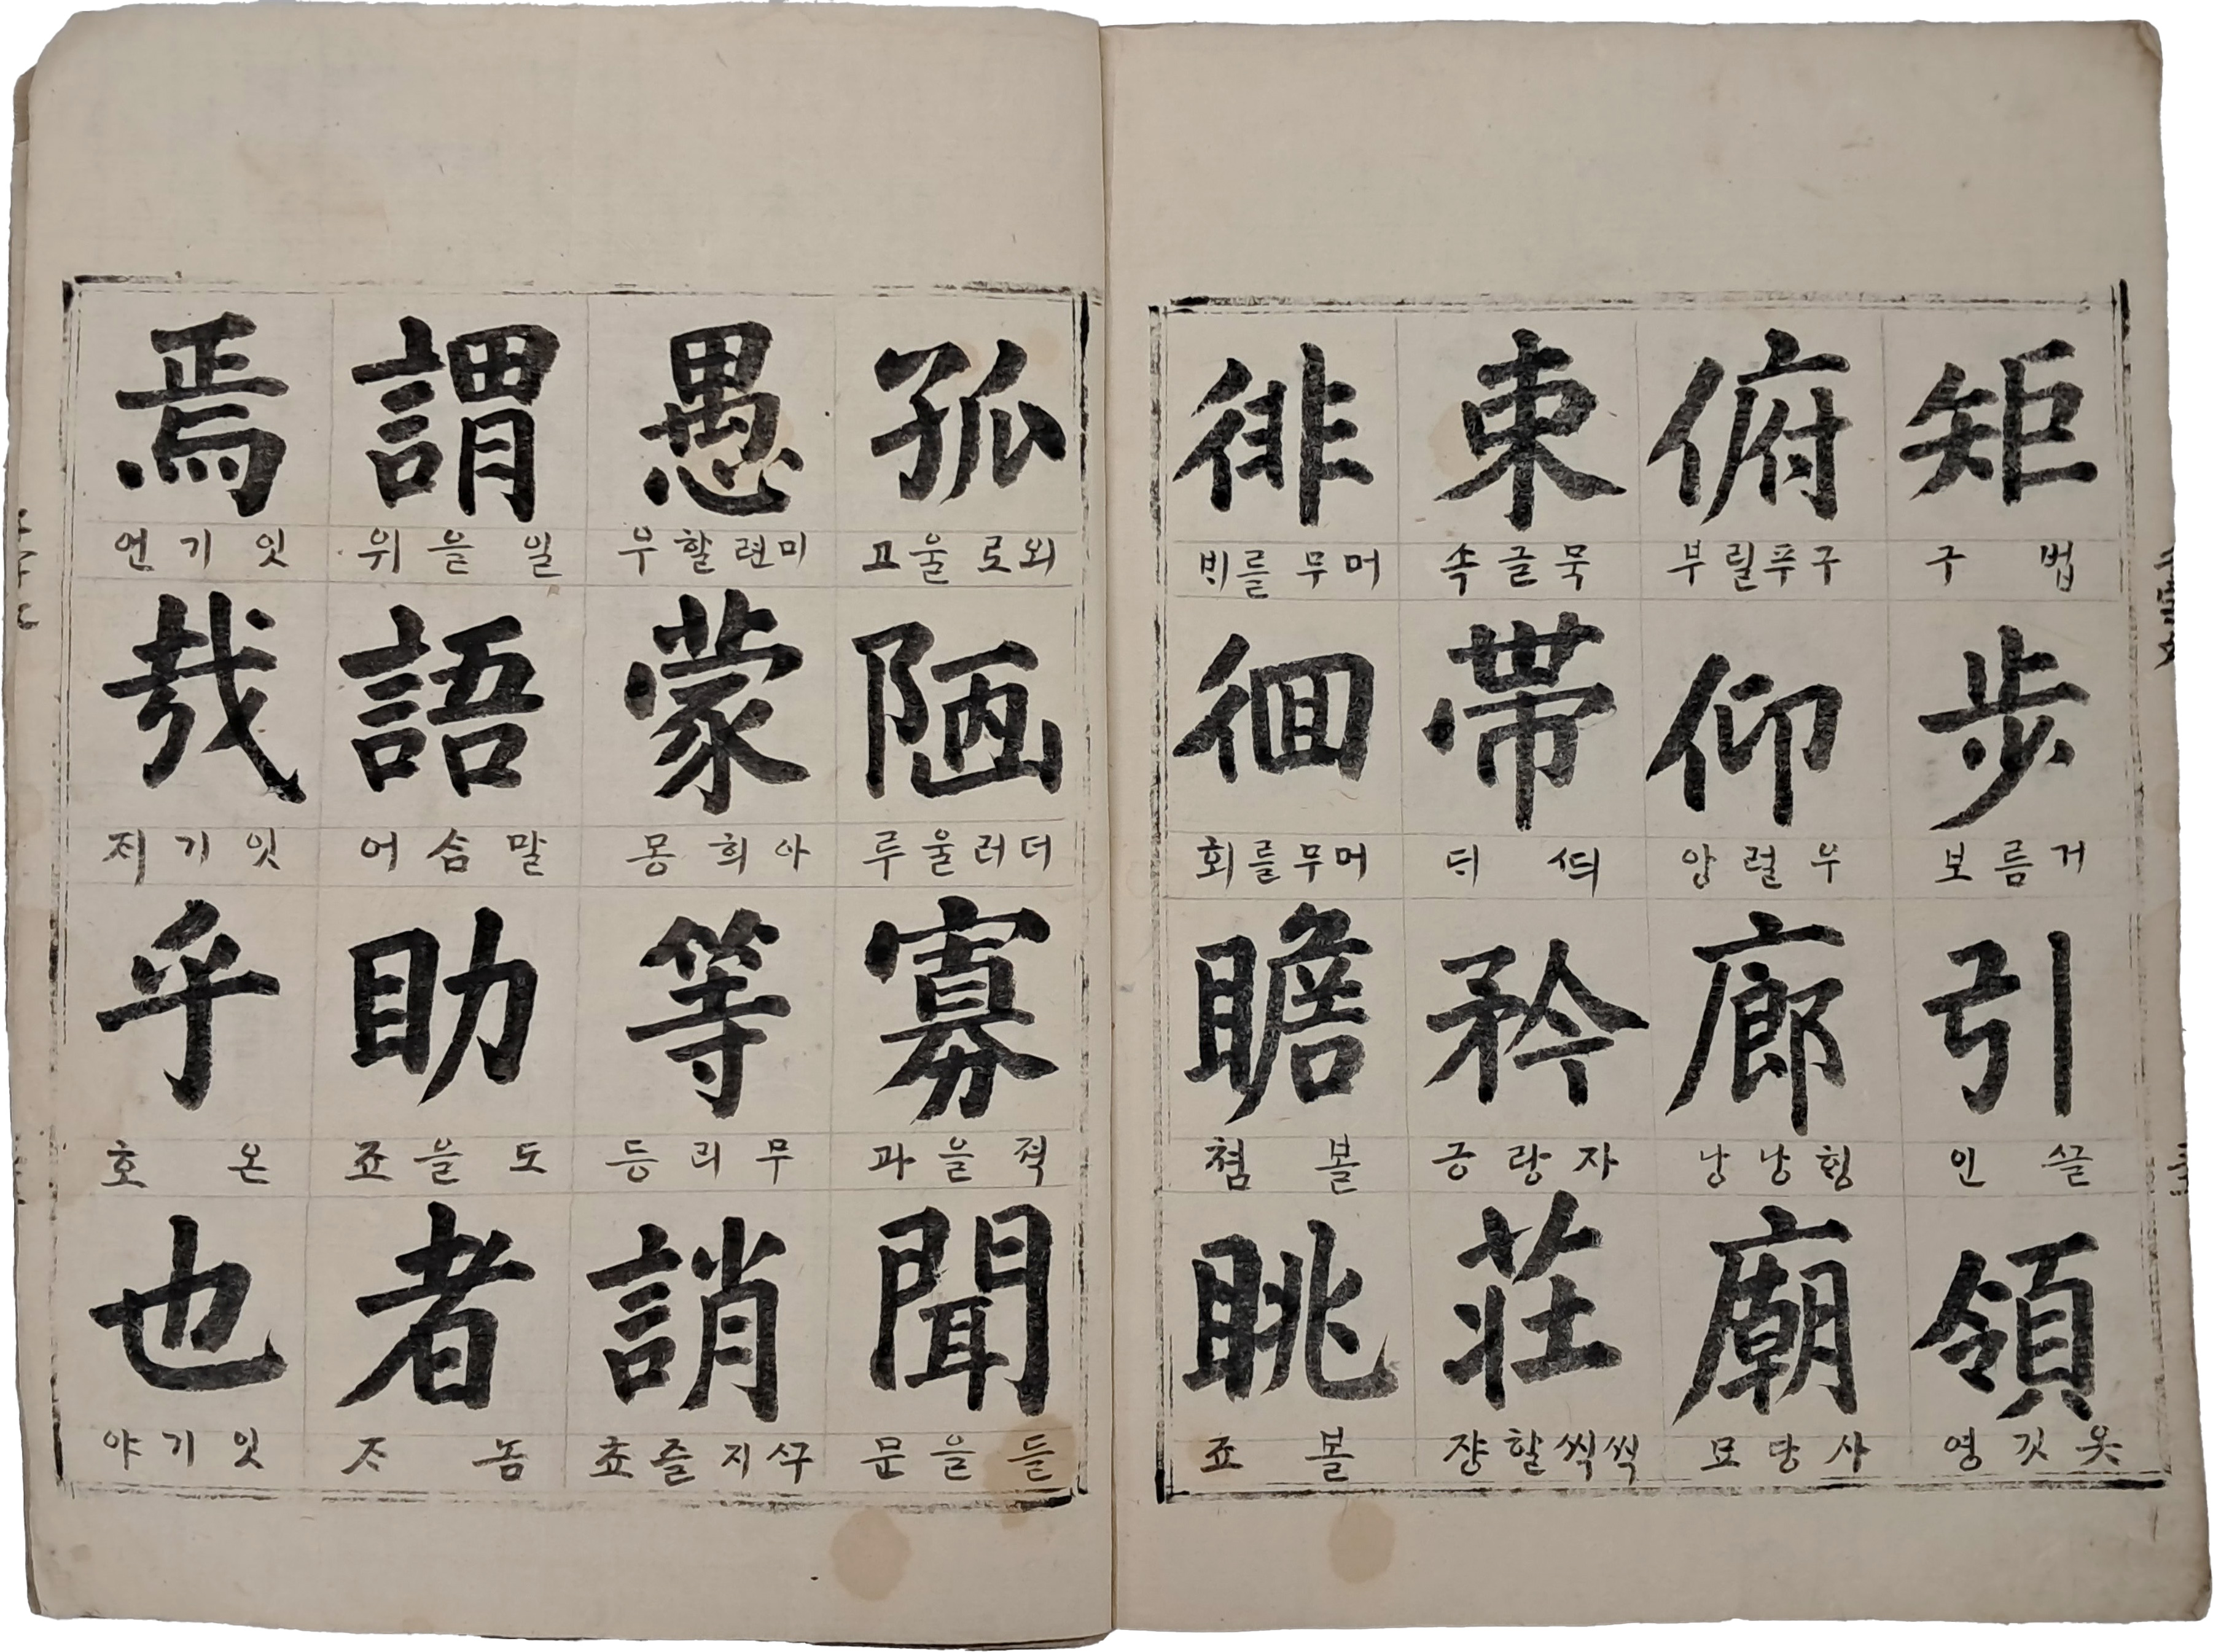 矩
법 구
步
거름 보
引
ᄭᅳᆯ 인
領
옷깃 영
俯
구푸릴 부
仰
우럴 앙
廊
힝낭 낭
廟
사당 묘
束
묵글 속
帶
ᄯᅴ ᄃᆡ
矜
자랑 긍
莊
씩씩할 쟝
徘
머무를 ᄇᆡ
徊
머무를 회
瞻
볼 쳠
眺
볼 죠
孤
외로울 고
陋
더러울 루
寡
젹을 과
聞
들을 문
愚
미련할 우
蒙
아희 몽
等
무리 등
誚
ᄭᅮ지즐 쵸
謂
일을 위
語
말슴 어
助
도을 죠
者
놈 ᄌᆞ
焉
잇기 언
哉
잇기 ᄌᆡ
乎
온 호
也
잇기 야